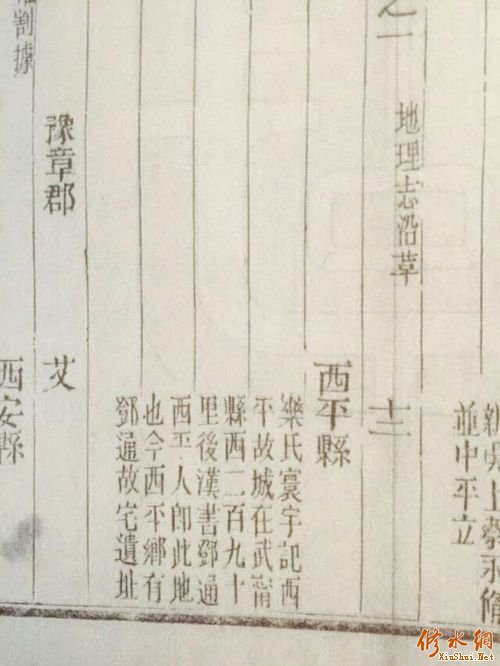 新吳上蔡永修
並中平立
之一 地理志沿革 十三
西平縣
樂氏寰宇記西
平故城在武甯
縣西二百九十
里後漢書鄧通
西平人卽此地
也今西平鄉有
鄧通故宅遺址
豫章郡 艾
割據
西安縣
修水網
XiuShui.Net